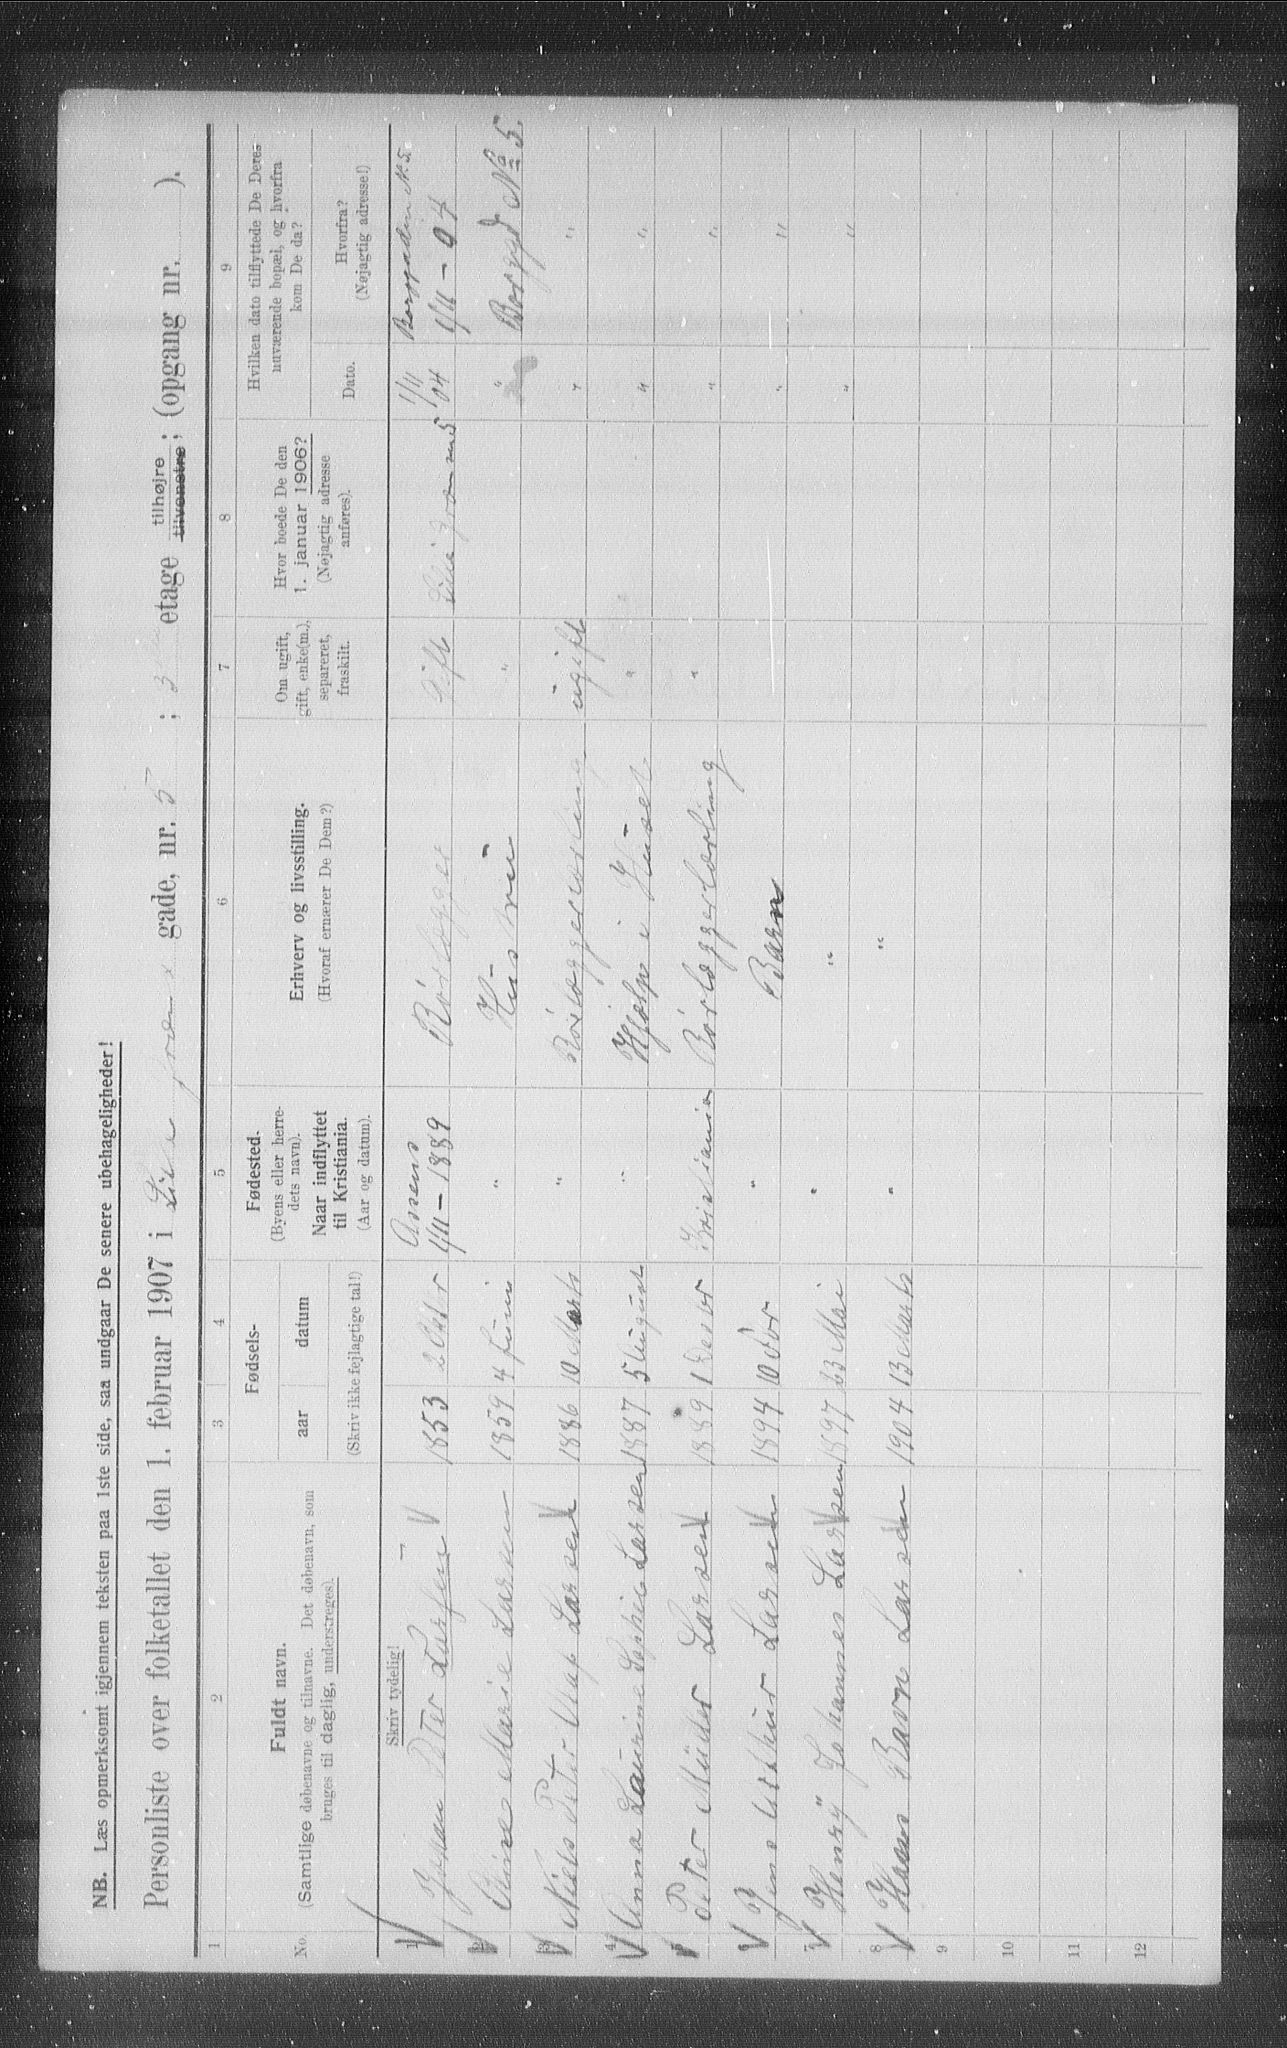 NB. Læs opmerksomt igjennem teksten paa 1ste side, saa undgaar De senere ubehageligheder!
Personliste over folketallet den 1. februar 1907 i gade, nr. 5 ; 3 etage tilhøjre tilvenstre ; (opgang nr. ).
1 2 3 4 5 6 7 8 9
No.
Fuldt navn.
(Samtlige døbenavne og tilnavne. Det døbenavn, som
bruges til daglig, understreges).
Fødsels-
aar datum
(Skriv ikke fejlagtige tal!)
Fødested.
(Byens eller herre-
dets navn).
Naar indflyttet
til Kristiania.
(Aar og datum).
Erhverv og livsstilling.
(Hvoraf ernærer De Dem?)
Om ugift,
gift, enke(m.),
separeret,
fraskilt.
Hvor boede De den
1. januar 1906?
(Nøjagtig adresse
anføres).
Hvilken dato tilflyttede De Deres
nuværende bopæl, og hvorfra
kom De da?
Dato.
Hvorfra?
(Nøjagtig adresse!)
Skriv tydelig!
1 Johan Peter Larsen 1853 2 Oktbr Assens 1/11-1889 Rörlægger Gift 1/11 04 Borggaden No 5. 1/11-04
2 Marie Larsen 1859 4 Juni " Hustru " " Borggd No 5.
3 Niels Peter Larsen 1886 10 Marts " Rörlæggerlærling ugift " "
4 Anna Laurine Sophie Larsen 1887 5 August " Hjælp i Huset " " "
5 Peter Müller Larsen 1889 1 Desbr Kristiania Rörlæggerlærling " " "
6 Jens Arthur Larsen 1894 10 " Barn " "
7 Henry Johannes Larsen 1897 23 Mai " " " "
8 Hans Ravn Larsen 1904 13 Marts " " "
9
10
11
12